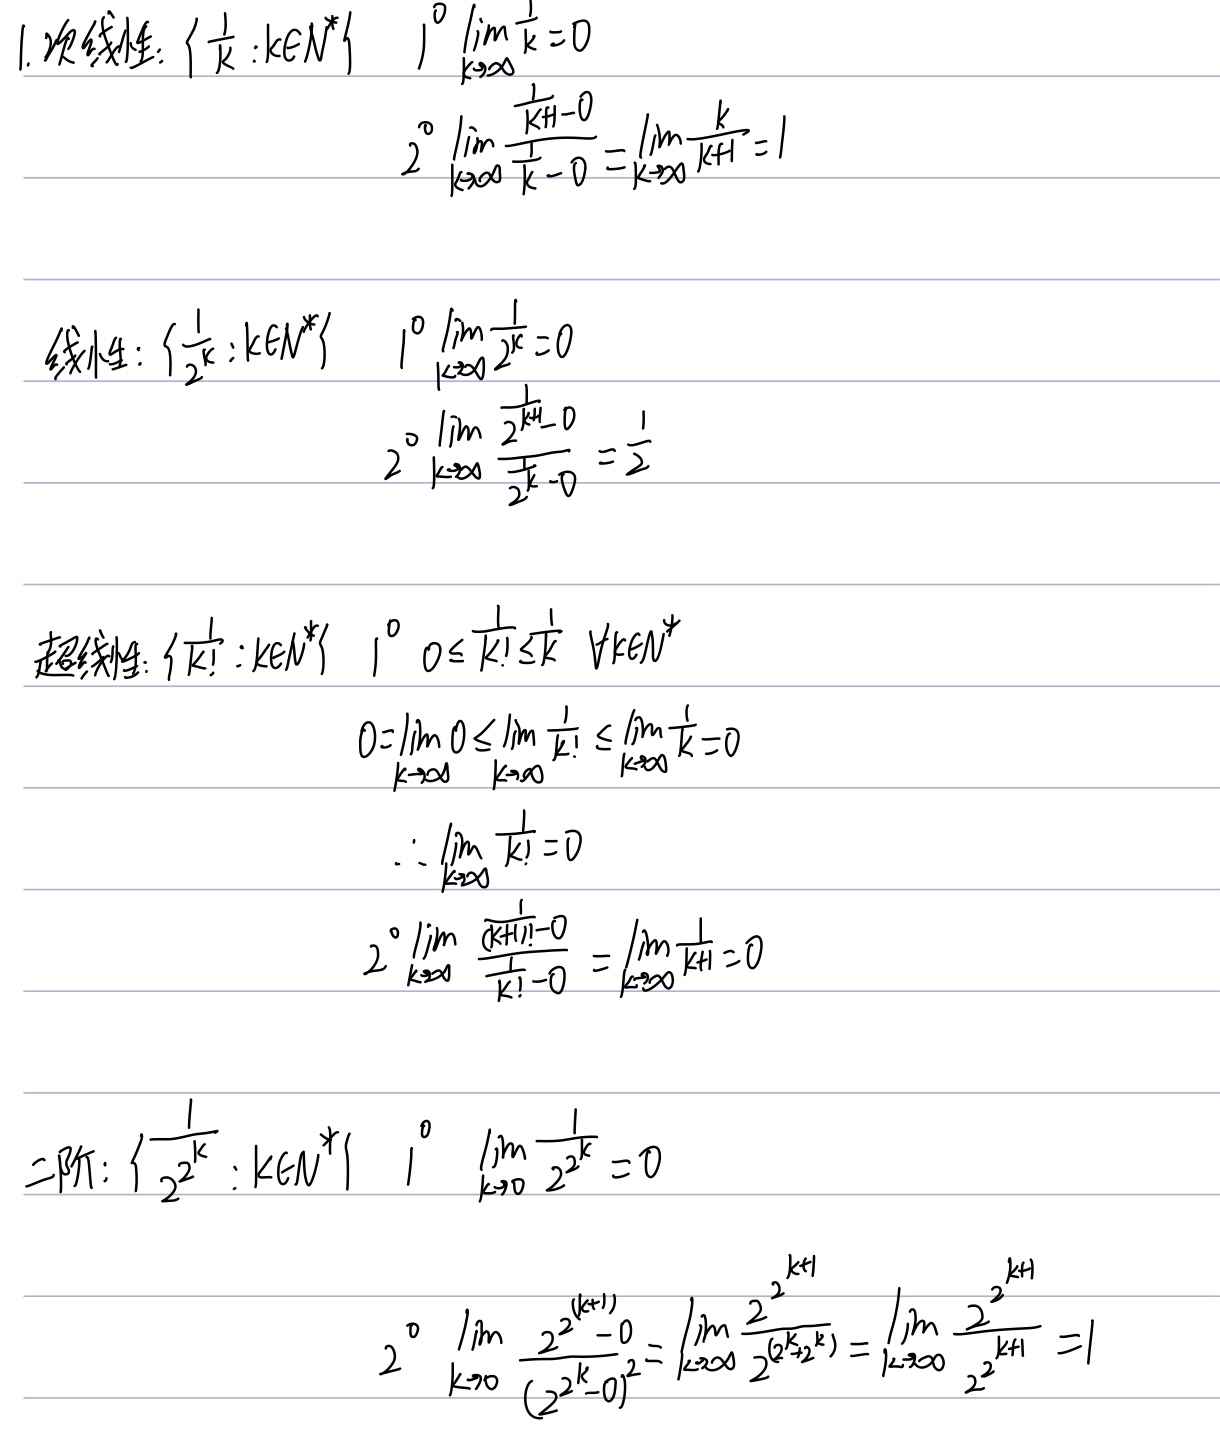 1. 次线性: {1/k : k∈N*} 1⁰ lim_{k→∞} 1/k = 0
2⁰ lim_{k→∞} (1/(k+1) - 0)/(1/k - 0) = lim_{k→∞} k/(k+1) = 1
线性: {1/2^k : k∈N*} 1⁰ lim_{k→∞} 1/2^k = 0
2⁰ lim_{k→∞} (1/2^(k+1) - 0)/(1/2^k - 0) = 1/2
超线性: {1/k! : k∈N*} 1⁰ 0 ≤ 1/k! ≤ 1/k ∀k∈N*
0 = lim_{k→∞} 0 ≤ lim_{k→∞} 1/k! ≤ lim_{k→∞} 1/k = 0
∴ lim_{k→∞} 1/k! = 0
2⁰ lim_{k→∞} (1/(k+1)! - 0)/(1/k! - 0) = lim_{k→∞} 1/(k+1) = 0
二阶: {1/2^(2^k) : k∈N*} 1⁰ lim_{k→0} 1/2^(2^k) = 0
2⁰ lim_{k→0} (2^(2^(k+1)) - 0)/(2^(2^k) - 0)^2 = lim_{k→∞} 2^(2^(k+1))/2^(2^k+2^k) = lim_{k→∞} 2^(2^(k+1))/2^(2^(k+1)) = 1